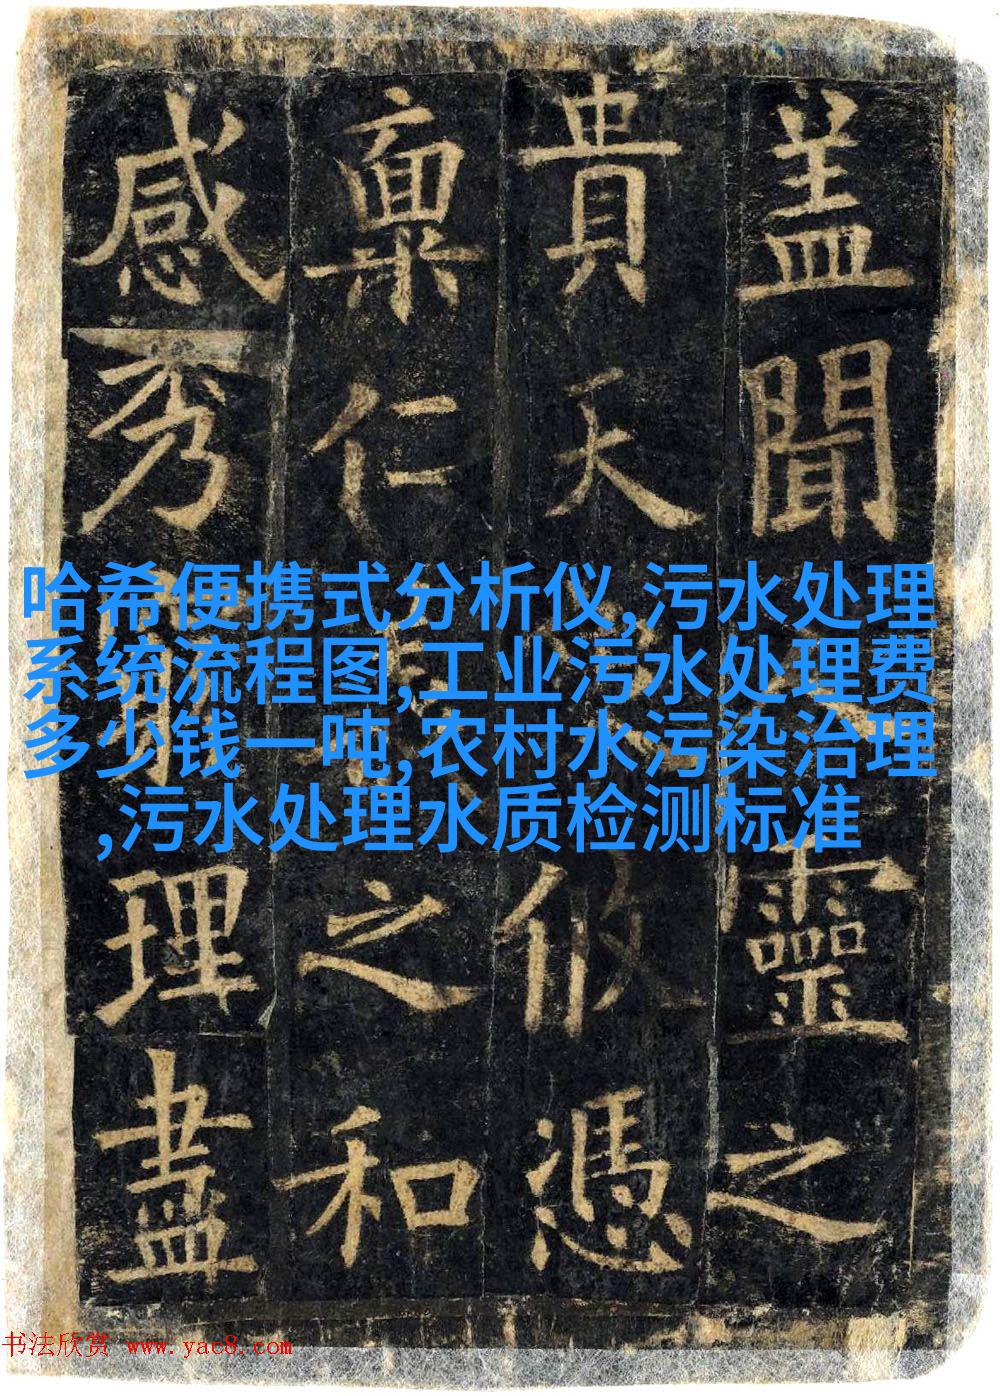 盖聞
靈之
貴天
攸憑
稟仁
之和
感秀
理盡
哈希便携式分析仪,污水处理
系统流程图,工业污水处理费
多少钱一吨,农村水污染治理
,污水处理水质检测标准
书法欣赏 www.yac8.com